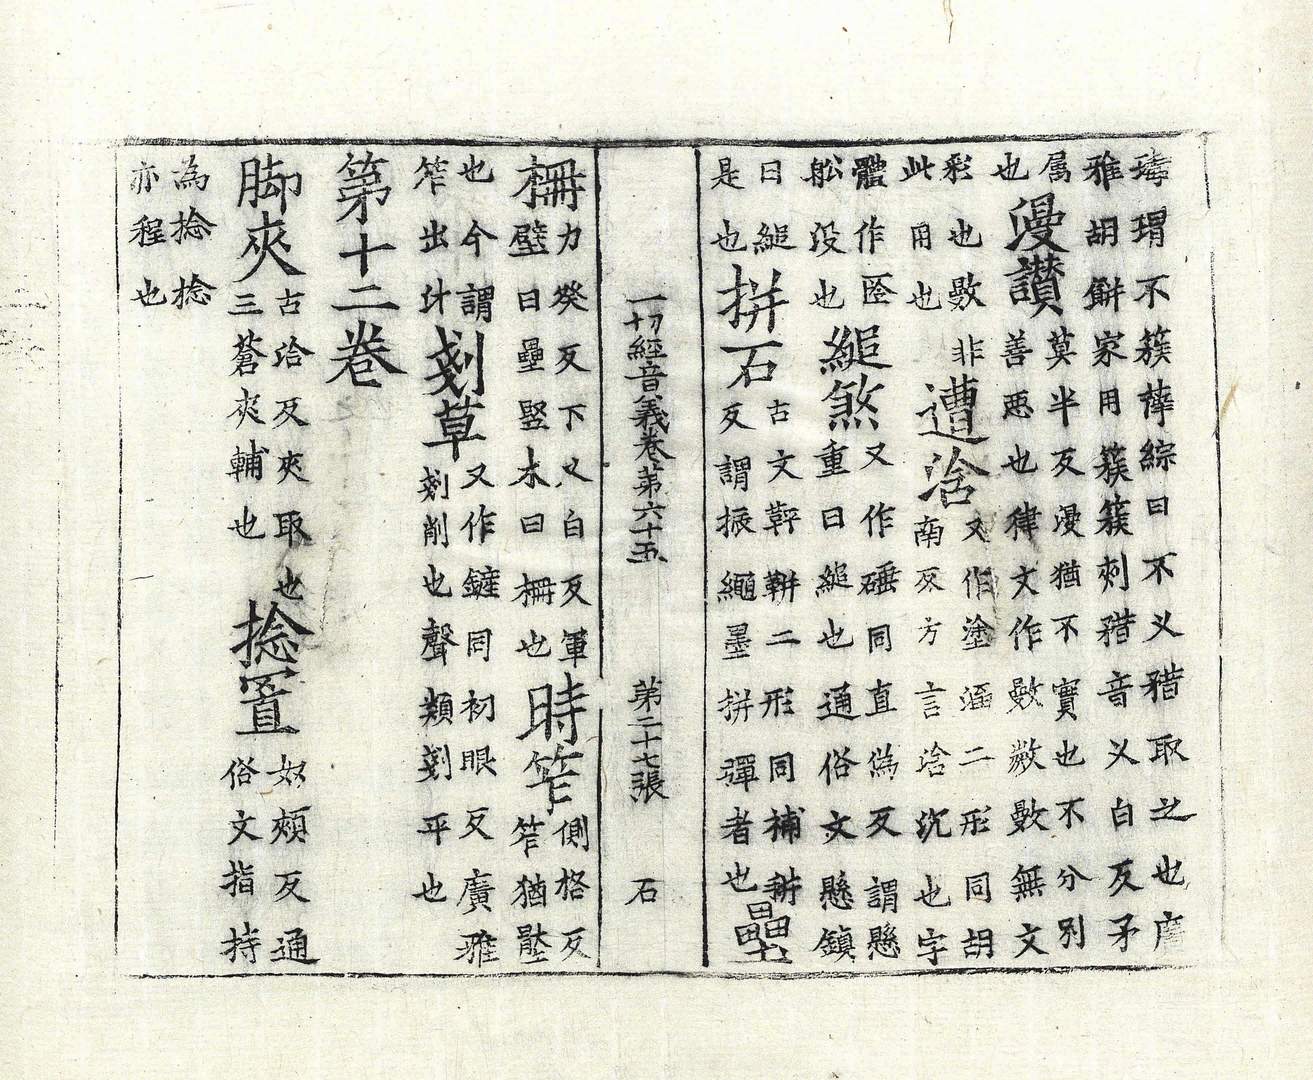 瑇瑁不簇䔾綜曰不义矠取之也廣
雅胡䱡家用簇簇刺矠音乂白反矛
属莫半反漫猶不實也不分别
也漫讃善惡也律文作數敱數無文
彩也數非遭涻又作塗涵二形同胡
此用也南反方言涻沉也字
體作匼又作硾同直偽反謂懸
舩没也縋煞重曰縋也通俗文懸鎮
曰縋古文䡈軿二形同補耕
是也拼石反謂振繩墨拼彈者也壘
一切經音義卷第六十五 第二十七張 石
柵力癸反下乂白反軍時笮側格反
壁曰壘竪木曰柵也笮猶壓
也今謂又作鏟同初眼反廣雅
笮出汁剗草剗削也聲類剗平也
第十二卷
脚夾古洽反夾取也捻置奴頰反通
三蒼夾輔也俗文指持
為捻捻
亦程也